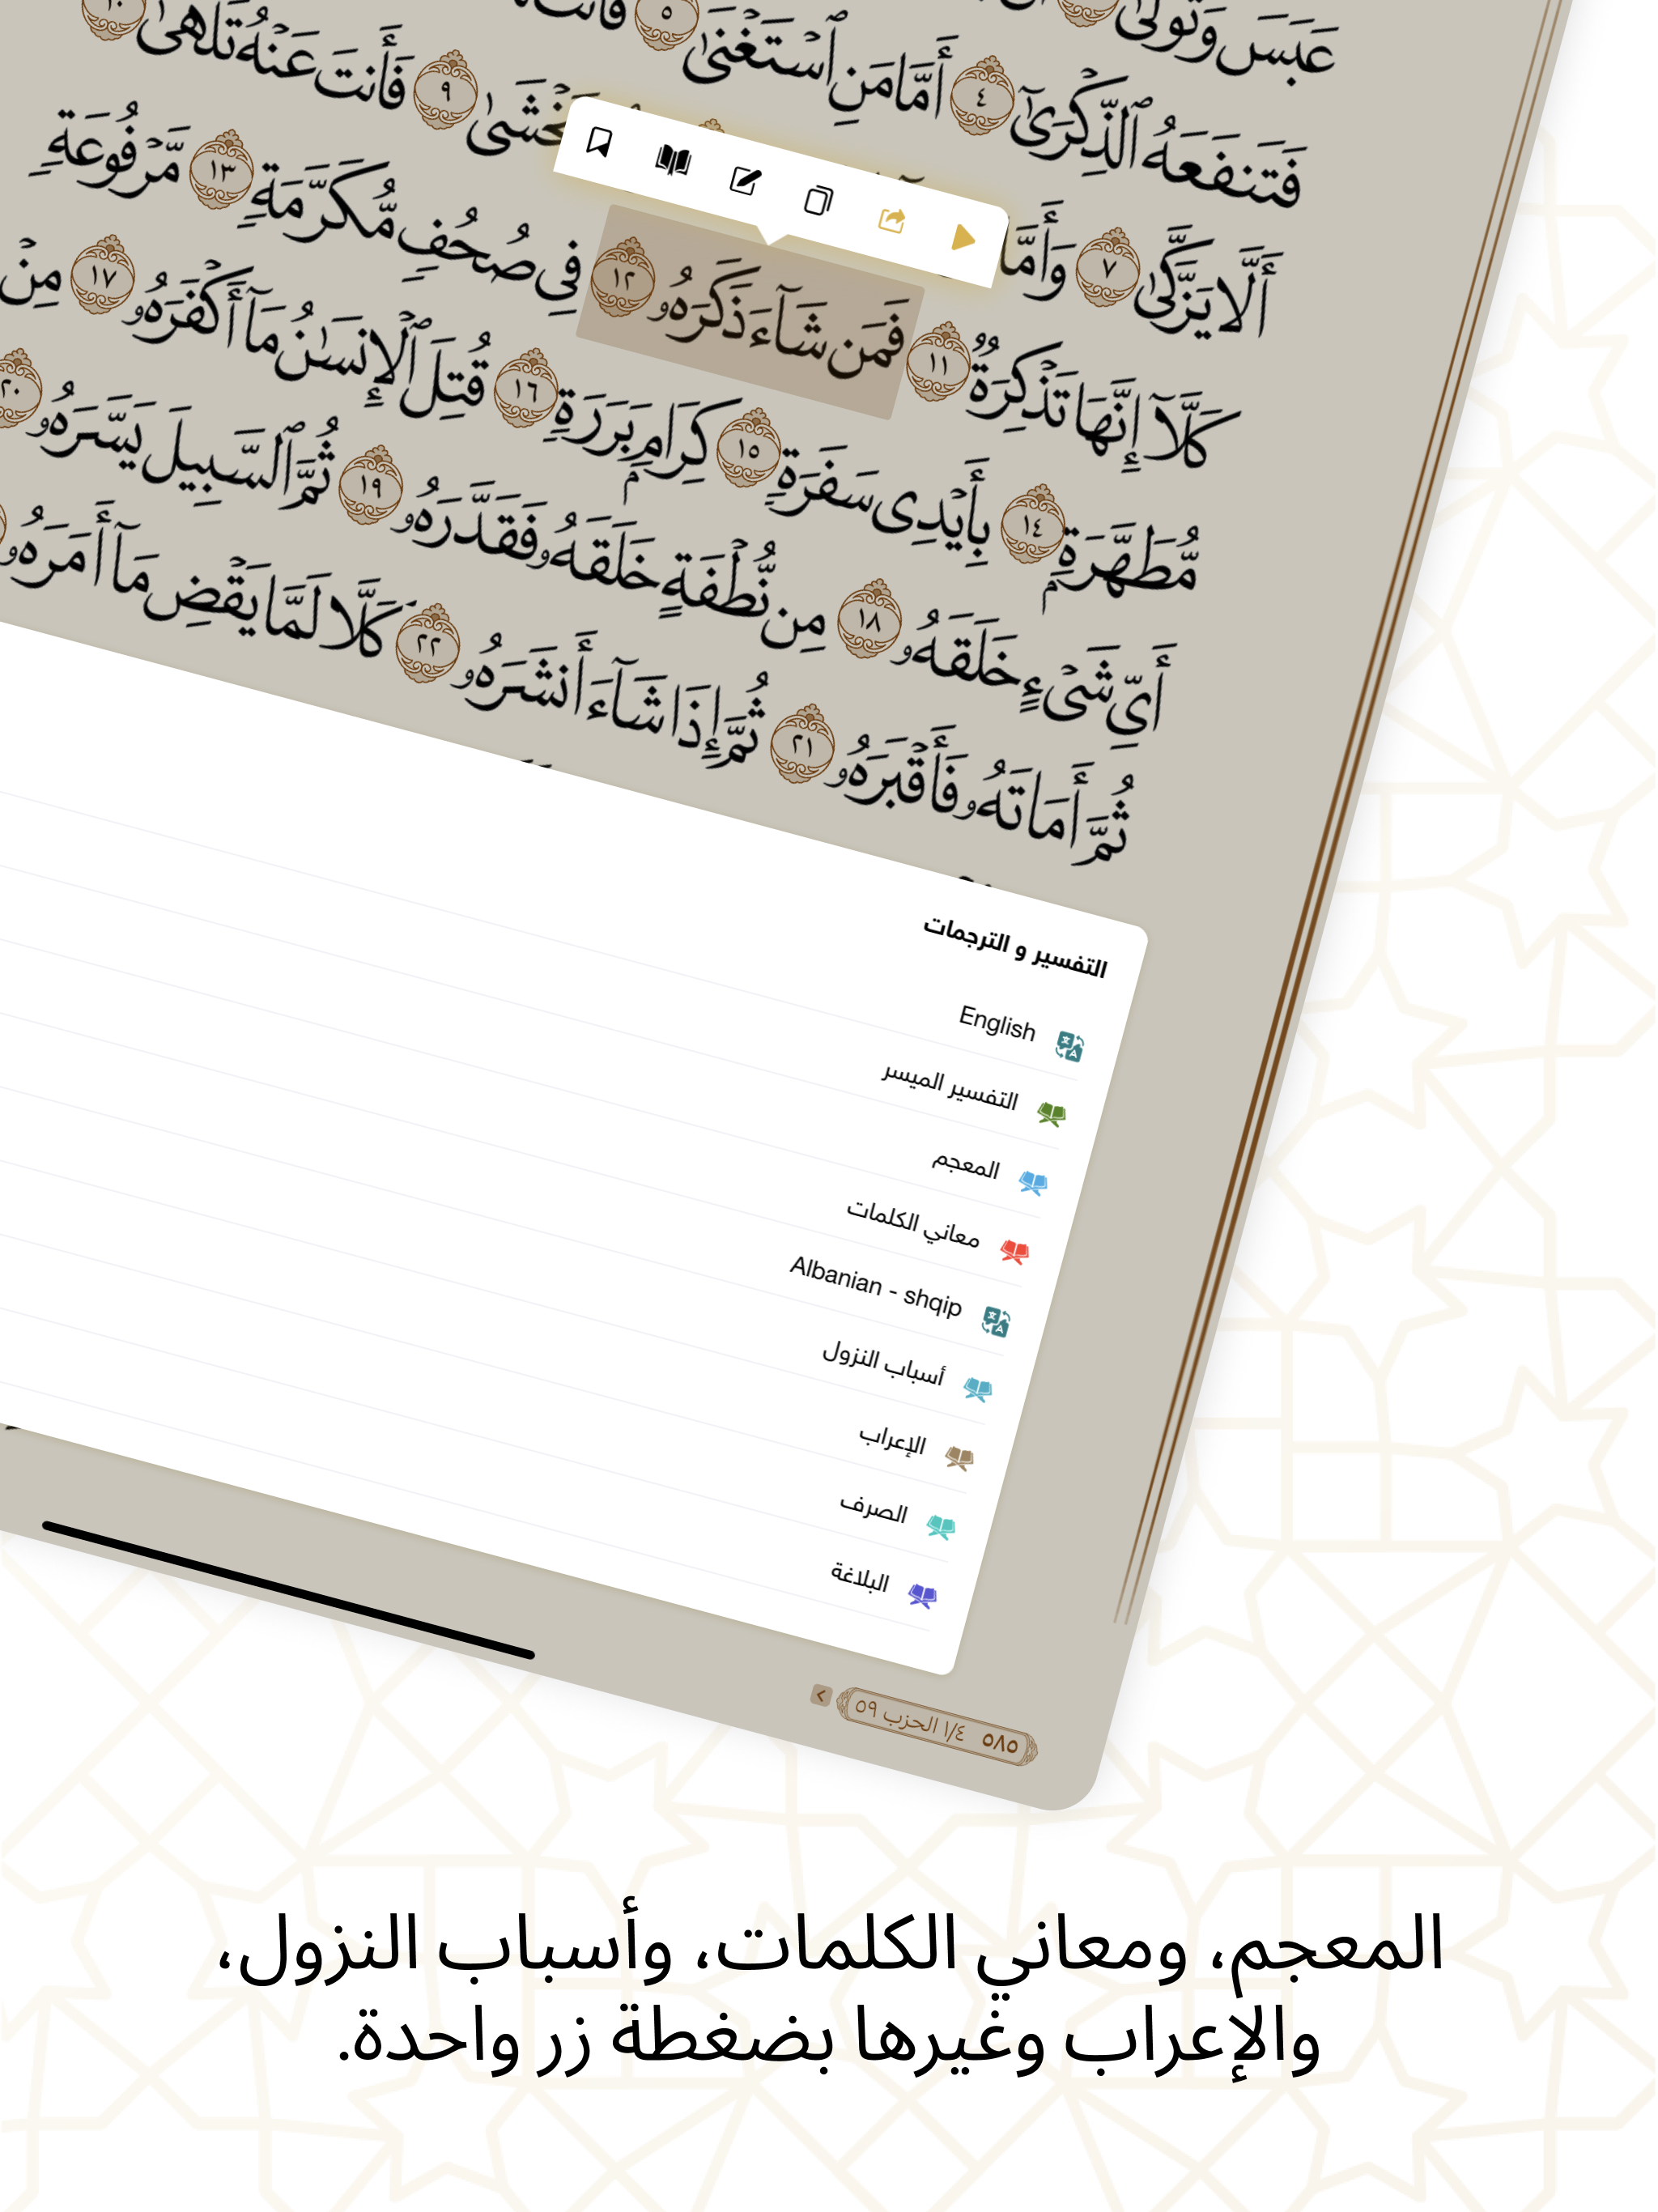 عَبَسَ وَتَوَلَّىٰٓ
فَتَنفَعَهُ ٱلذِّكۡرَىٰٓ ٤ أَمَّا مَنِ ٱسۡتَغۡنَىٰ ٥ فَأَنتَ
أَلَّا يَزَّكَّىٰ ٧ وَأَمَّا يَخۡشَىٰ ٩ فَأَنتَ عَنۡهُ تَلَهَّىٰ ١٠
كَلَّآ إِنَّهَا تَذۡكِرَةٞ ١١ فَمَن شَآءَ ذَكَرَهُۥ ١٢ فِي صُحُفٖ مُّكَرَّمَةٖ ١٣ مَّرۡفُوعَةٖ
مُّطَهَّرَةِۭ ١٤ بِأَيۡدِي سَفَرَةٖ ١٥ كِرَامِۭ بَرَرَةٖ ١٦ قُتِلَ ٱلۡإِنسَٰنُ مَآ أَكۡفَرَهُۥ ١٧ مِنۡ
أَيِّ شَيۡءٍ خَلَقَهُۥ ١٨ مِن نُّطۡفَةٍ خَلَقَهُۥ فَقَدَّرَهُۥ ١٩ ثُمَّ ٱلسَّبِيلَ يَسَّرَهُۥ ٢٠
ثُمَّ أَمَاتَهُۥ فَأَقۡبَرَهُۥ ٢١ ثُمَّ إِذَا شَآءَ أَنشَرَهُۥ ٢٢ كَلَّا لَمَّا يَقۡضِ مَآ أَمَرَهُۥ
التفسير و الترجمات
English
التفسير الميسر
المعجم
معاني الكلمات
Albanian - shqip
أسباب النزول
الإعراب
الصرف
البلاغة
٥٨٥ ١/٤ الحزب ٥٩
المعجم، ومعاني الكلمات، وأسباب النزول،
والإعراب وغيرها بضغطة زر واحدة.